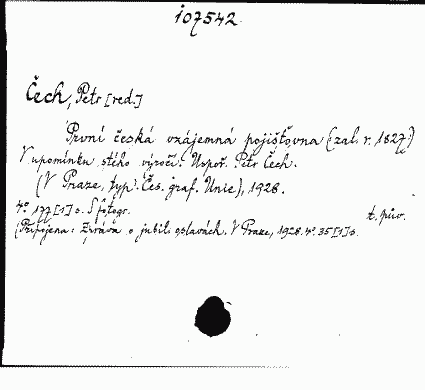 107542
Čech, Petr [red.]
První česká vzájemná pojišťovna (zal. r. 1827.)
V upomínku stého výročí. Uspoř. Petr Čech.
(V Praze, typ. Čes. graf. Unie), 1928.
4° 177 [1] s. S fotogr. t. pův.
(Připojena: Zpráva o jubil. oslavách. V Praze, 1928. 4°. 35 [1] s.